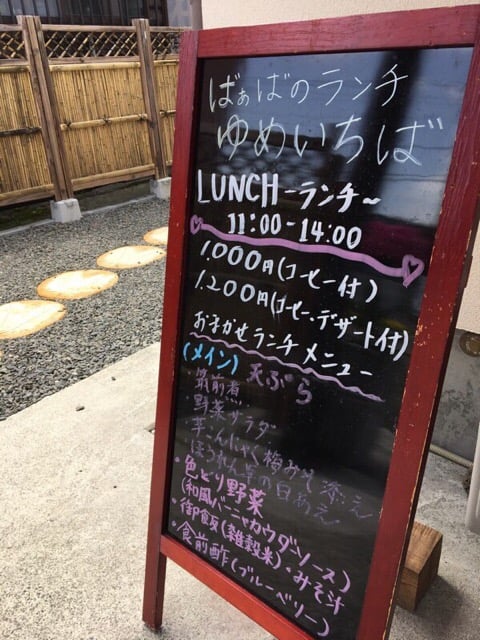 ばぁばのランチ
ゆめいちば
LUNCH-ランチ~
11:00-14:00
1.000円(コーヒー付)
1.200円(コーヒー.デザート付)
おまかせランチメニュー
(メイン) 天ぷら
・筑前煮
野菜サラダ
芋こんにゃく梅みそ添え
ほうれん草の白あえ
・色どり野菜
(和風バーニャカウダソース)
・御飯(雑穀米)・みそ汁
・食前酢(ブルーベリー)